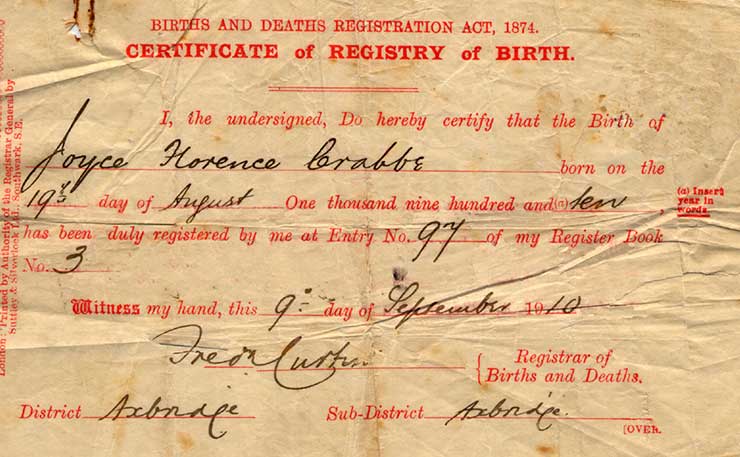 BIRTHS AND DEATHS REGISTRATION ACT, 1874.
CERTIFICATE of REGISTRY of BIRTH.
I, the undersigned, Do hereby certify that the Birth of
Joyce Florence Crabbe born on the
19th day of August One thousand nine hundred and (a) ten,
(a) Insert
year in
words.
has been duly registered by me at Entry No. 97 of my Register Book
No. 3
Witness my hand, this 9th day of September 1910
Registrar of
Births and Deaths.
District Axbridge Sub-District Axbridge.
[OVER.
London: Printed by Authority of the Registrar General by
Suttley & Silverlock Ltd., Southwark, S.E.